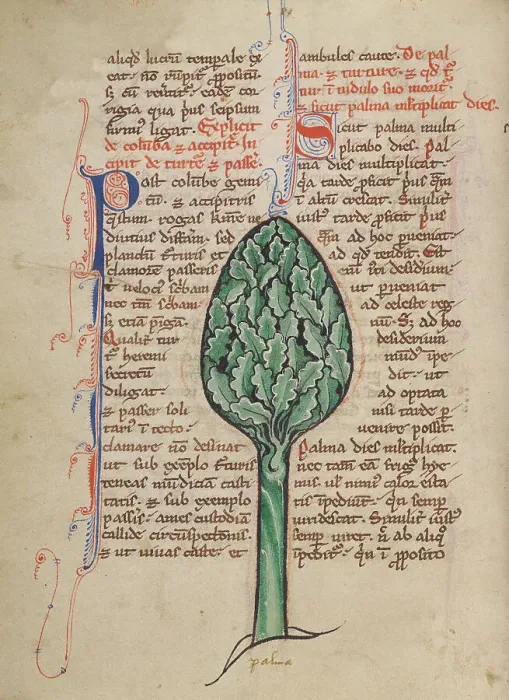 aliqd̉ lucrū tempale q̄
eat· nō rūpit ꝓpositū·
ꝗ cū reūtit̉· eadē cor
rigia qua p̉us seipsum
firmit̉ ligat. Explicit
de colūba ⁊ accipit̉. In
cipit de turt̉e ⁊ passe.
Post colūbe gemi
tū· ⁊ accipitris
rogas kīme ne
diutius diffām· sed
planctū t̉turis et
clamorē passeris
t̉ velocit̉ sc̉bam
nec tm̄ sc̉bam·
ꝗ etiā pīgā·
Qualit̉ tur
t̉ heremi
secretū
diligat·
⁊ passer soli
tari᷒ ī tecto
clamare nō desinat
ut sub exēplo t̉turis
teneas mūdiciā casti
tatis· ⁊ sub exemplo
passis̉· ames custodiā
callide circūspectōnis·
⁊ ut vivas caste· et
ambules caute. De pal
ma· ⁊ turture· ⁊ qd̉ t̉t̉
tur ī nidulo suo morit̉·
⁊ sicut palma mltiplicat dies.
Sicut palma multi
plicabo dies. Pal
ma dies multiplicat·
q̄a tarde ꝓficit p̉us q̄m
ī altū crescat. Similit̉
iust᷒ tarde ꝓficit p̉us
q̄m ad hoc pueniat·
ad qd̉ tendit. Est
eni t̉ri desid̉ium·
ut pueniat
ad celeste reg
nū· Sꝫ ad hoc
desiderium
mūd᷒ īpe
dit· ut
ad optata
nisi tarde p̉
venire possit.
Palma dies mltiplicat.
nec tam̄ eā frig᷒ hye
mis· ul̉ nimi᷒ calor esta
tis īpediūt· q̄n semp
viridescat. Similit̉ iust᷒
semp viret. n̄ ab aliq̊
īpedit̉· q̄n ī ꝓposito
palma